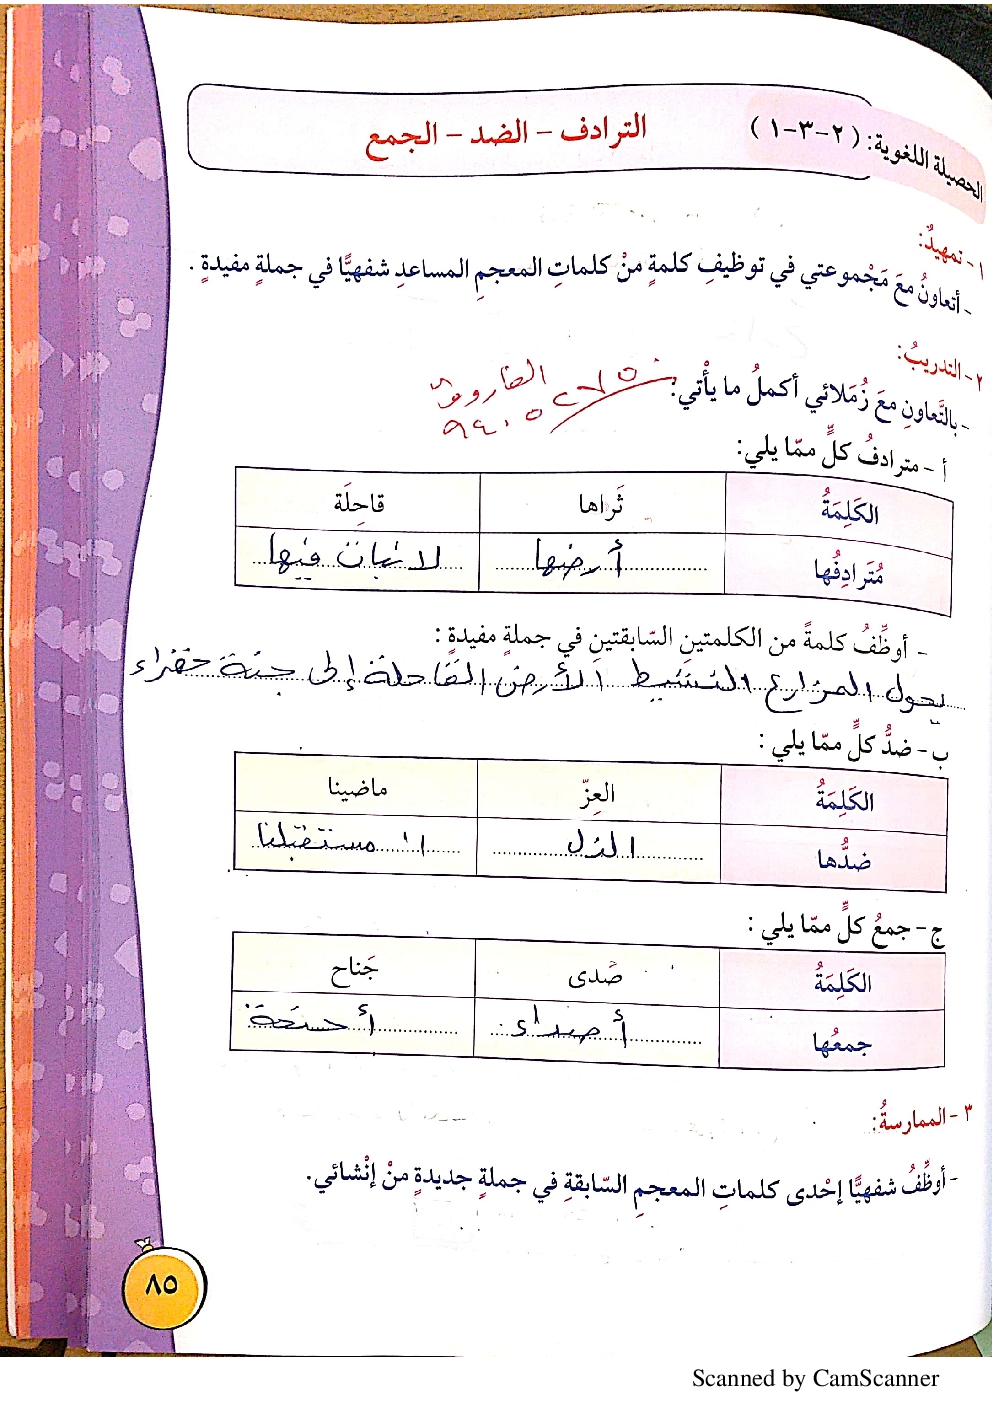 الحصيلة اللغوية: (٢-٣-١) الترادف - الضد - الجمع
١- تمهيدٌ:
- أتعاونُ معَ مَجْموعتي في توظيفِ كلمةٍ منْ كلماتِ المعجمِ المساعدِ شفهيًّا في جملةٍ مفيدةٍ.
٢- التدريبُ:
- بالتَّعاونِ معَ زُمَلائي أكملُ ما يأْتي:
الفاروق
أ - مترادفُ كلٍّ ممّا يلي:
الكَلِمَةُ ثَراها قاحِلَة
مُتَرادِفُها أرضها لا نبات فيها
- أوظِّفُ كلمةً من الكلمتينِ السّابقتينِ في جملةٍ مفيدةٍ:
يحول المزارع النشيط الأرض القاحلة إلى جنة خضراء
ب - ضدُّ كلٍّ ممّا يلي:
الكَلِمَةُ العِزّ ماضينا
ضدُّها الذل مستقبلنا
ج - جمعُ كلٍّ ممّا يلي:
الكَلِمَةُ صَدى جَناح
جمعُها أصداء أجنحة
٣- الممارسةُ:
- أوظِّفُ شفهيًّا إحْدى كلماتِ المعجمِ السّابقةِ في جملةٍ جديدةٍ منْ إنْشائي.
٨٥
Scanned by CamScanner